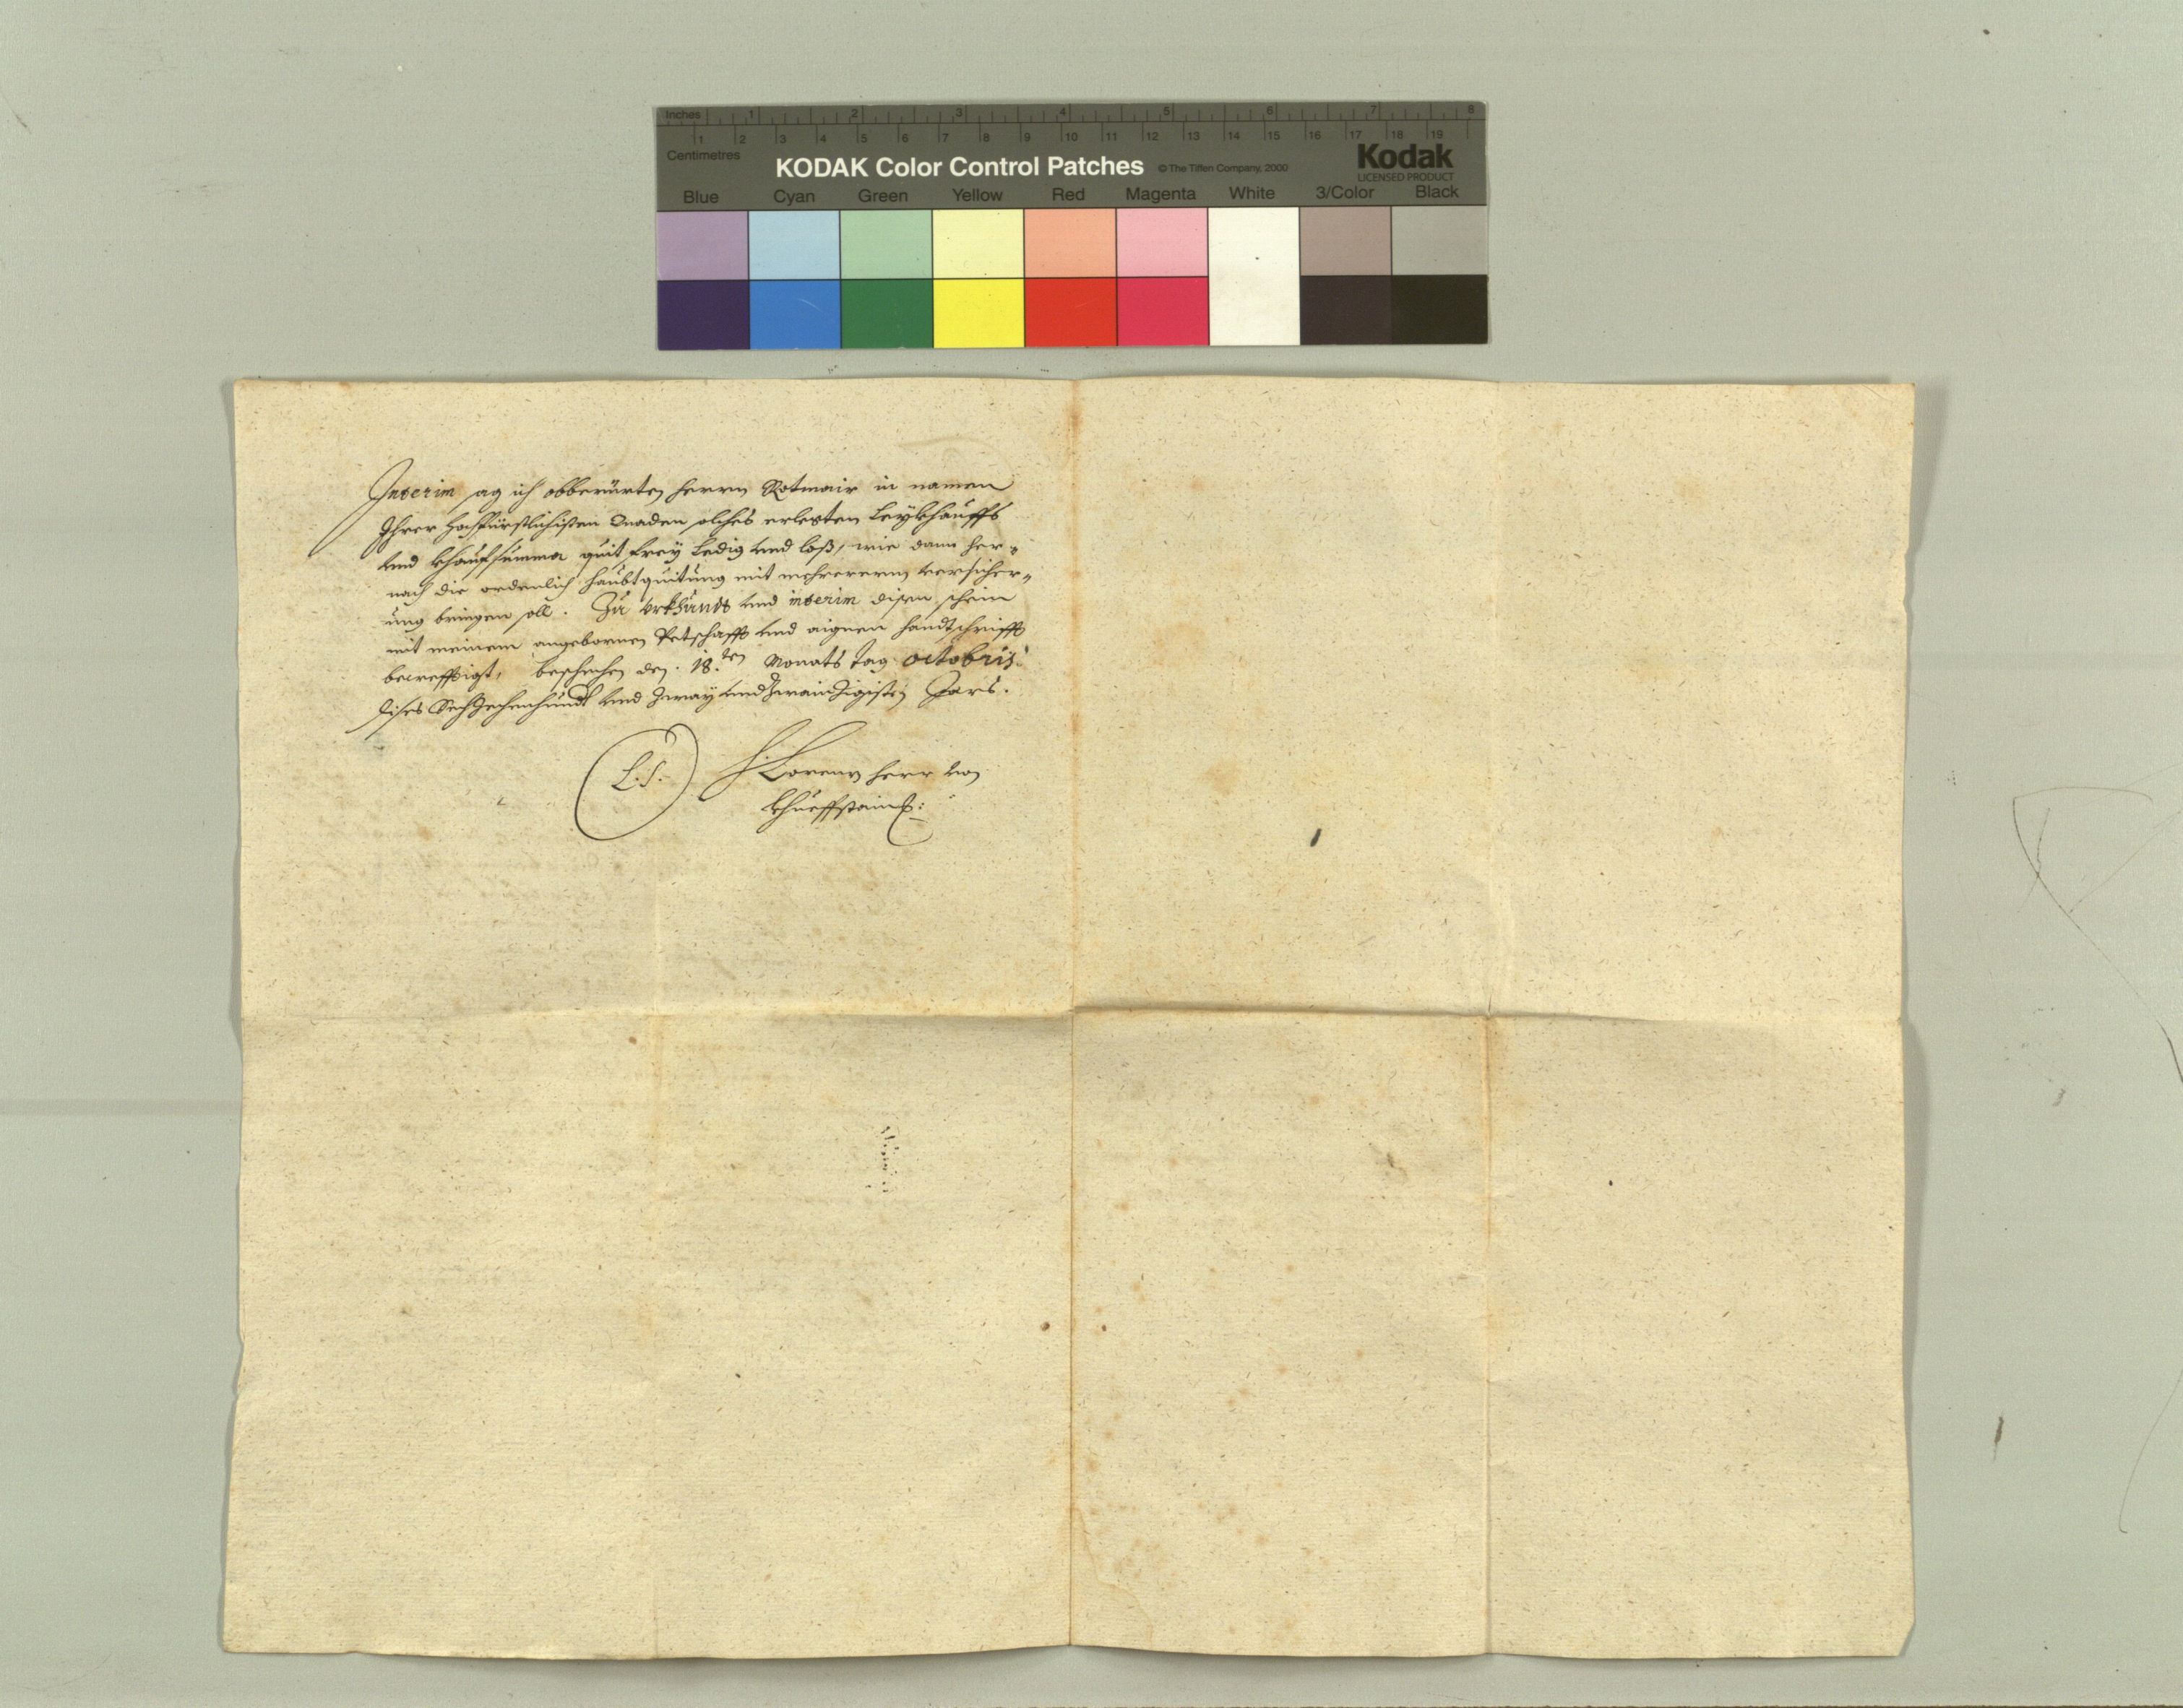 Inches 1 2 3 4 5 6 7 8
1 2 3 4 5 6 7 8 9 10 11 12 13 14 15 16 17 18 19
Centimetres
KODAK Color Control Patches © The Tiffen Company, 2000 Kodak
LICENSED PRODUCT
Blue Cyan Green Yellow Red Magenta White 3/Color Black
Interim sag ich obberürten herrn Rotmair in namen
Ihrer Hochfürstlichisten Gnaden solches erlegten Leykhauffs
und khaufsumma quit frey ledig und loß, wie dann her-
nach die ordenlich haubtquitung mit mehrererm versicher-
ung bringen soll. Zu Urkhundt und interim disen schein
mit meinem angebornen Petschafft und aignen handtschrifft
becrefftigt, beschehen den. 18.ten Monats tag octobris.
dises Sechzechenhundt und zway und zwainzigisten Jars.
L.S. Lorenz herr von
khueffstain